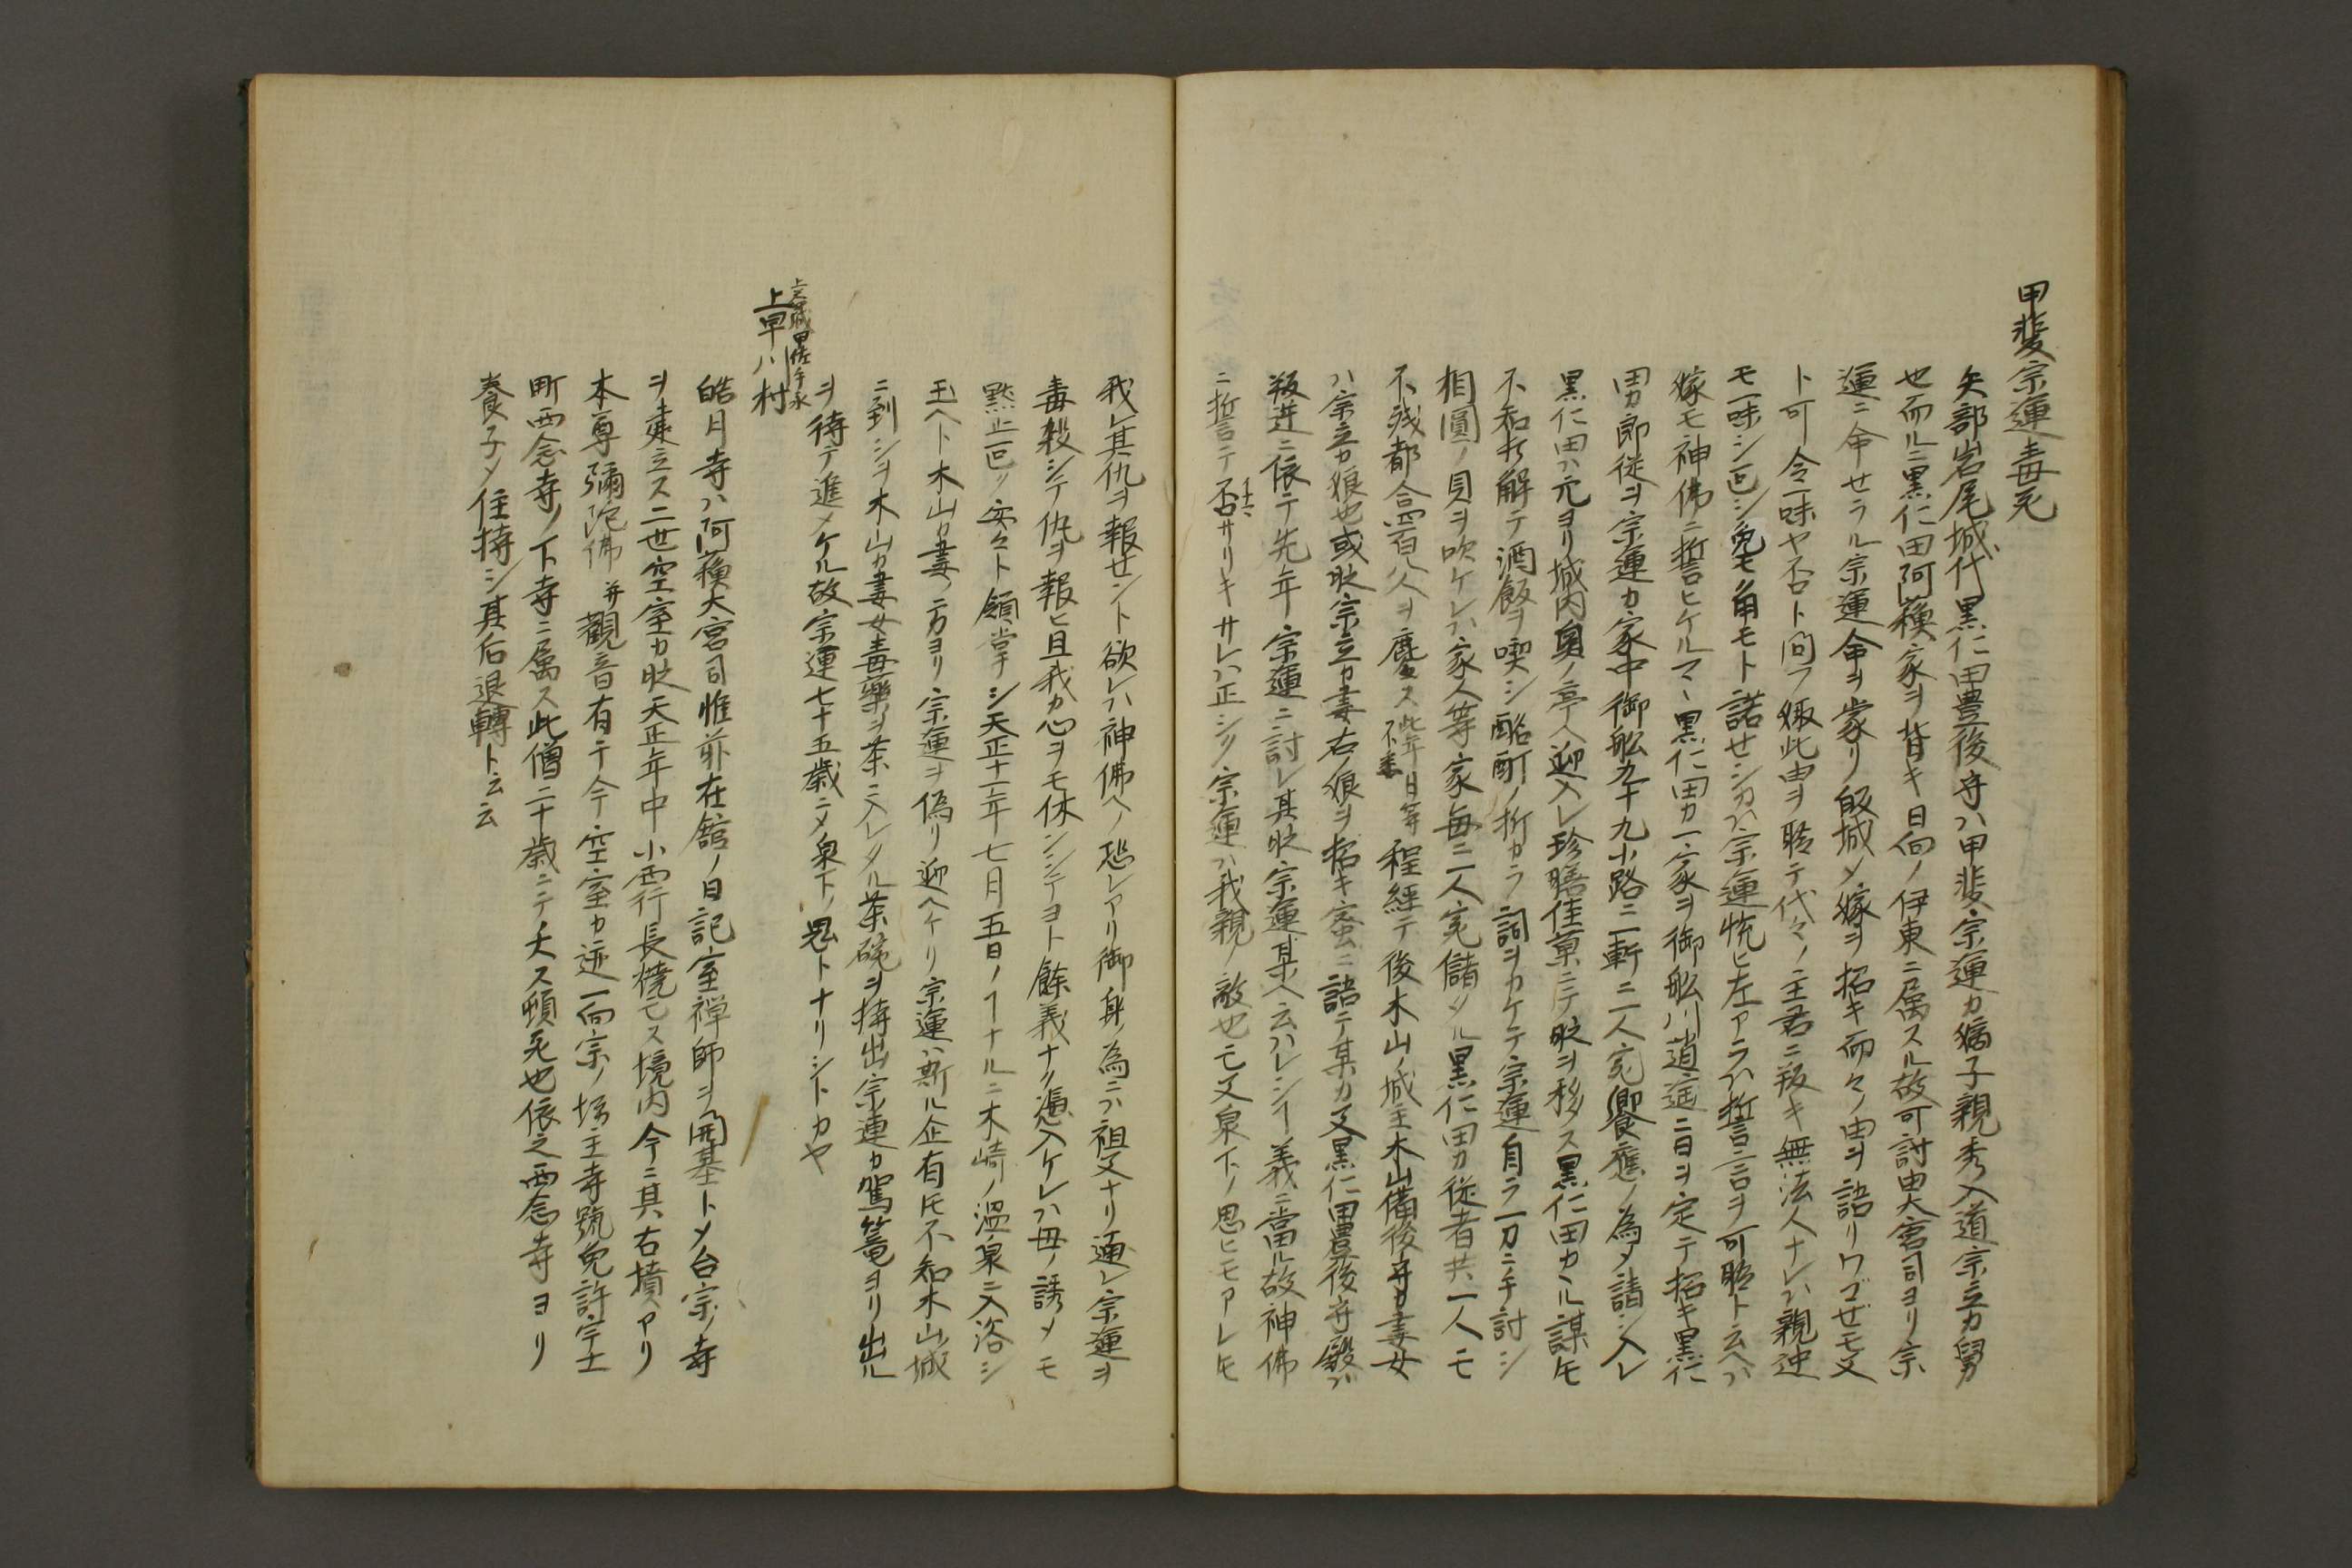 甲斐宗運毒死
矢部岩尾城代黒仁田豊後守ハ甲斐宗運カ嫡子親秀入道宗立カ舅
也而ルニ黒仁田阿蘓家ヲ背キ日向ノ伊東ニ属スル故可討由大宮司ヨリ宗
運ニ命セラル宗運命ヲ蒙リ皈城メ嫁ヲ招キ而々ノ由ヲ語リワゴゼモ父
ト可令一味ヤ否ト問フ娵此由ヲ聆テ代々ノ主君ニ叛キ無法人ナレハ親迚
モ一味シ可シ兎モ角モト諾せシカハ宗運悦ヒ左アラハ誓言ヲ可聆ト云ヘハ
嫁モ神佛ニ誓ヒケルマヽ黒仁田カ一家ヲ御舩川逍遥ニ日ヲ定テ招キ黒仁
田カ郎従ヲ宗運カ家中御舩九十九小路ニ一軒ニ二人宛饗應ノ為メ請シ入レ
黒仁田ハ元ヨリ城内奥ノ亭ヘ迎入レ珍膳佳菓ニテ時ヲ移ス黒仁田カヽル謀トモ
不知打解テ酒飯ヲ喫シ酩酊ノ折カラ詞ヲカケテ宗運自ラ一刀ニテ討シ
相圓ノ貝ヲ吹ケレハ家人等家毎ニ二人宛儲タル黒仁田カ従者共一人モ
不残都合四百八人ヲ鏖ス此年日等不委程経テ後木山ノ城主木山備後守カ妻女
ハ宗立カ娘也或時宗立カ妻右ノ娘ヲ招キ密ニ語テ某カ父黒仁田豊後守殿ハ
叛逆ニ依テ先年宗運ニ討レ其時宗運某ヘ云ハレシハ義ニ當ル故神佛
ニ誓テ否サリキサレハ正シク宗運ハ我親ノ敵也モ父泉下ノ思ヒモアレトモ
我レ其仇ヲ報せント欲レハ神佛ヘノ恐レアリ御身ノ為ニハ祖父ナリ通レ宗運ヲ
毒殺シテ仇ヲ報ヒ且我カ心ヲモ休ンシテヨト餘義ナク憑入ケレハ母ノ誘メモ
黙止回ク安々ト領掌シ天正十一年七月五日ノヿナルニ木崎ノ温泉ニ入浴シ
玉ヘト木山カ妻ノ方ヨリ宗運ヲ偽リ迎ヘケリ宗運ハ斯ル企有トモ不知木山城
ニ到シヲ木山カ妻女毒藥ヲ茶ニ入レタル茶碗ヲ持出宗運カ駕篭ヨリ出ル
ヲ待テ進メケル故宗運七十五歳ニメ泉下ノ鬼トナリシトカヤ
上早川村
皓月寺ハ阿蘓大宮司惟前在舘ノ日記室禅師ヲ開基トメ台宗ノ寺
ヲ建立ス二世空室カ時天正年中小西行長焼モス境内今ニ其古墳アリ
本尊彌陀佛并觀音有テ今空室カ迹一向宗ノ坊主寺號免許宇土
町西念寺ノ下寺ニ属ス此僧二十歳ニテ夭ス頓死也依之西念寺ヨリ
養子メ住持シ其后退轉ト云云